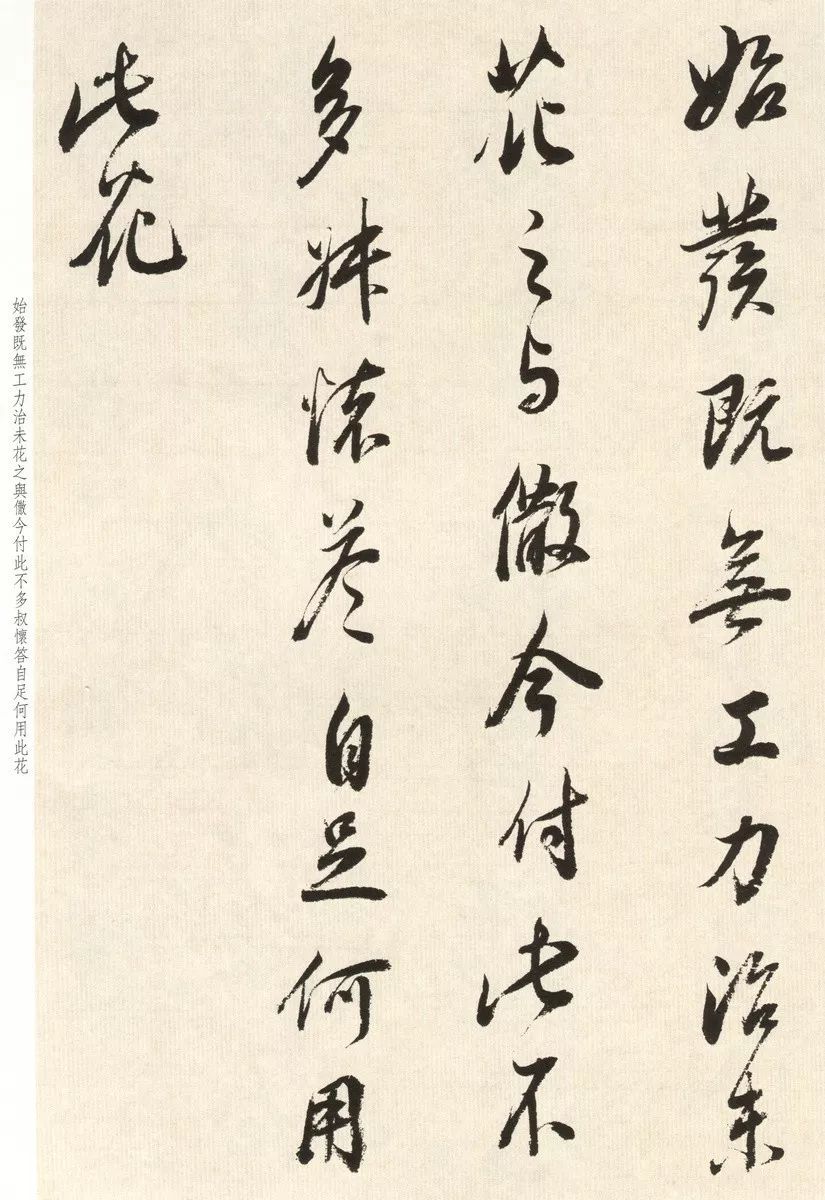 始發既無工力治未
花之与儆今付此不
多叔懷答自足何用
此花
始發既無工力治未花之與儆今付此不多叔懷答自足何用此花